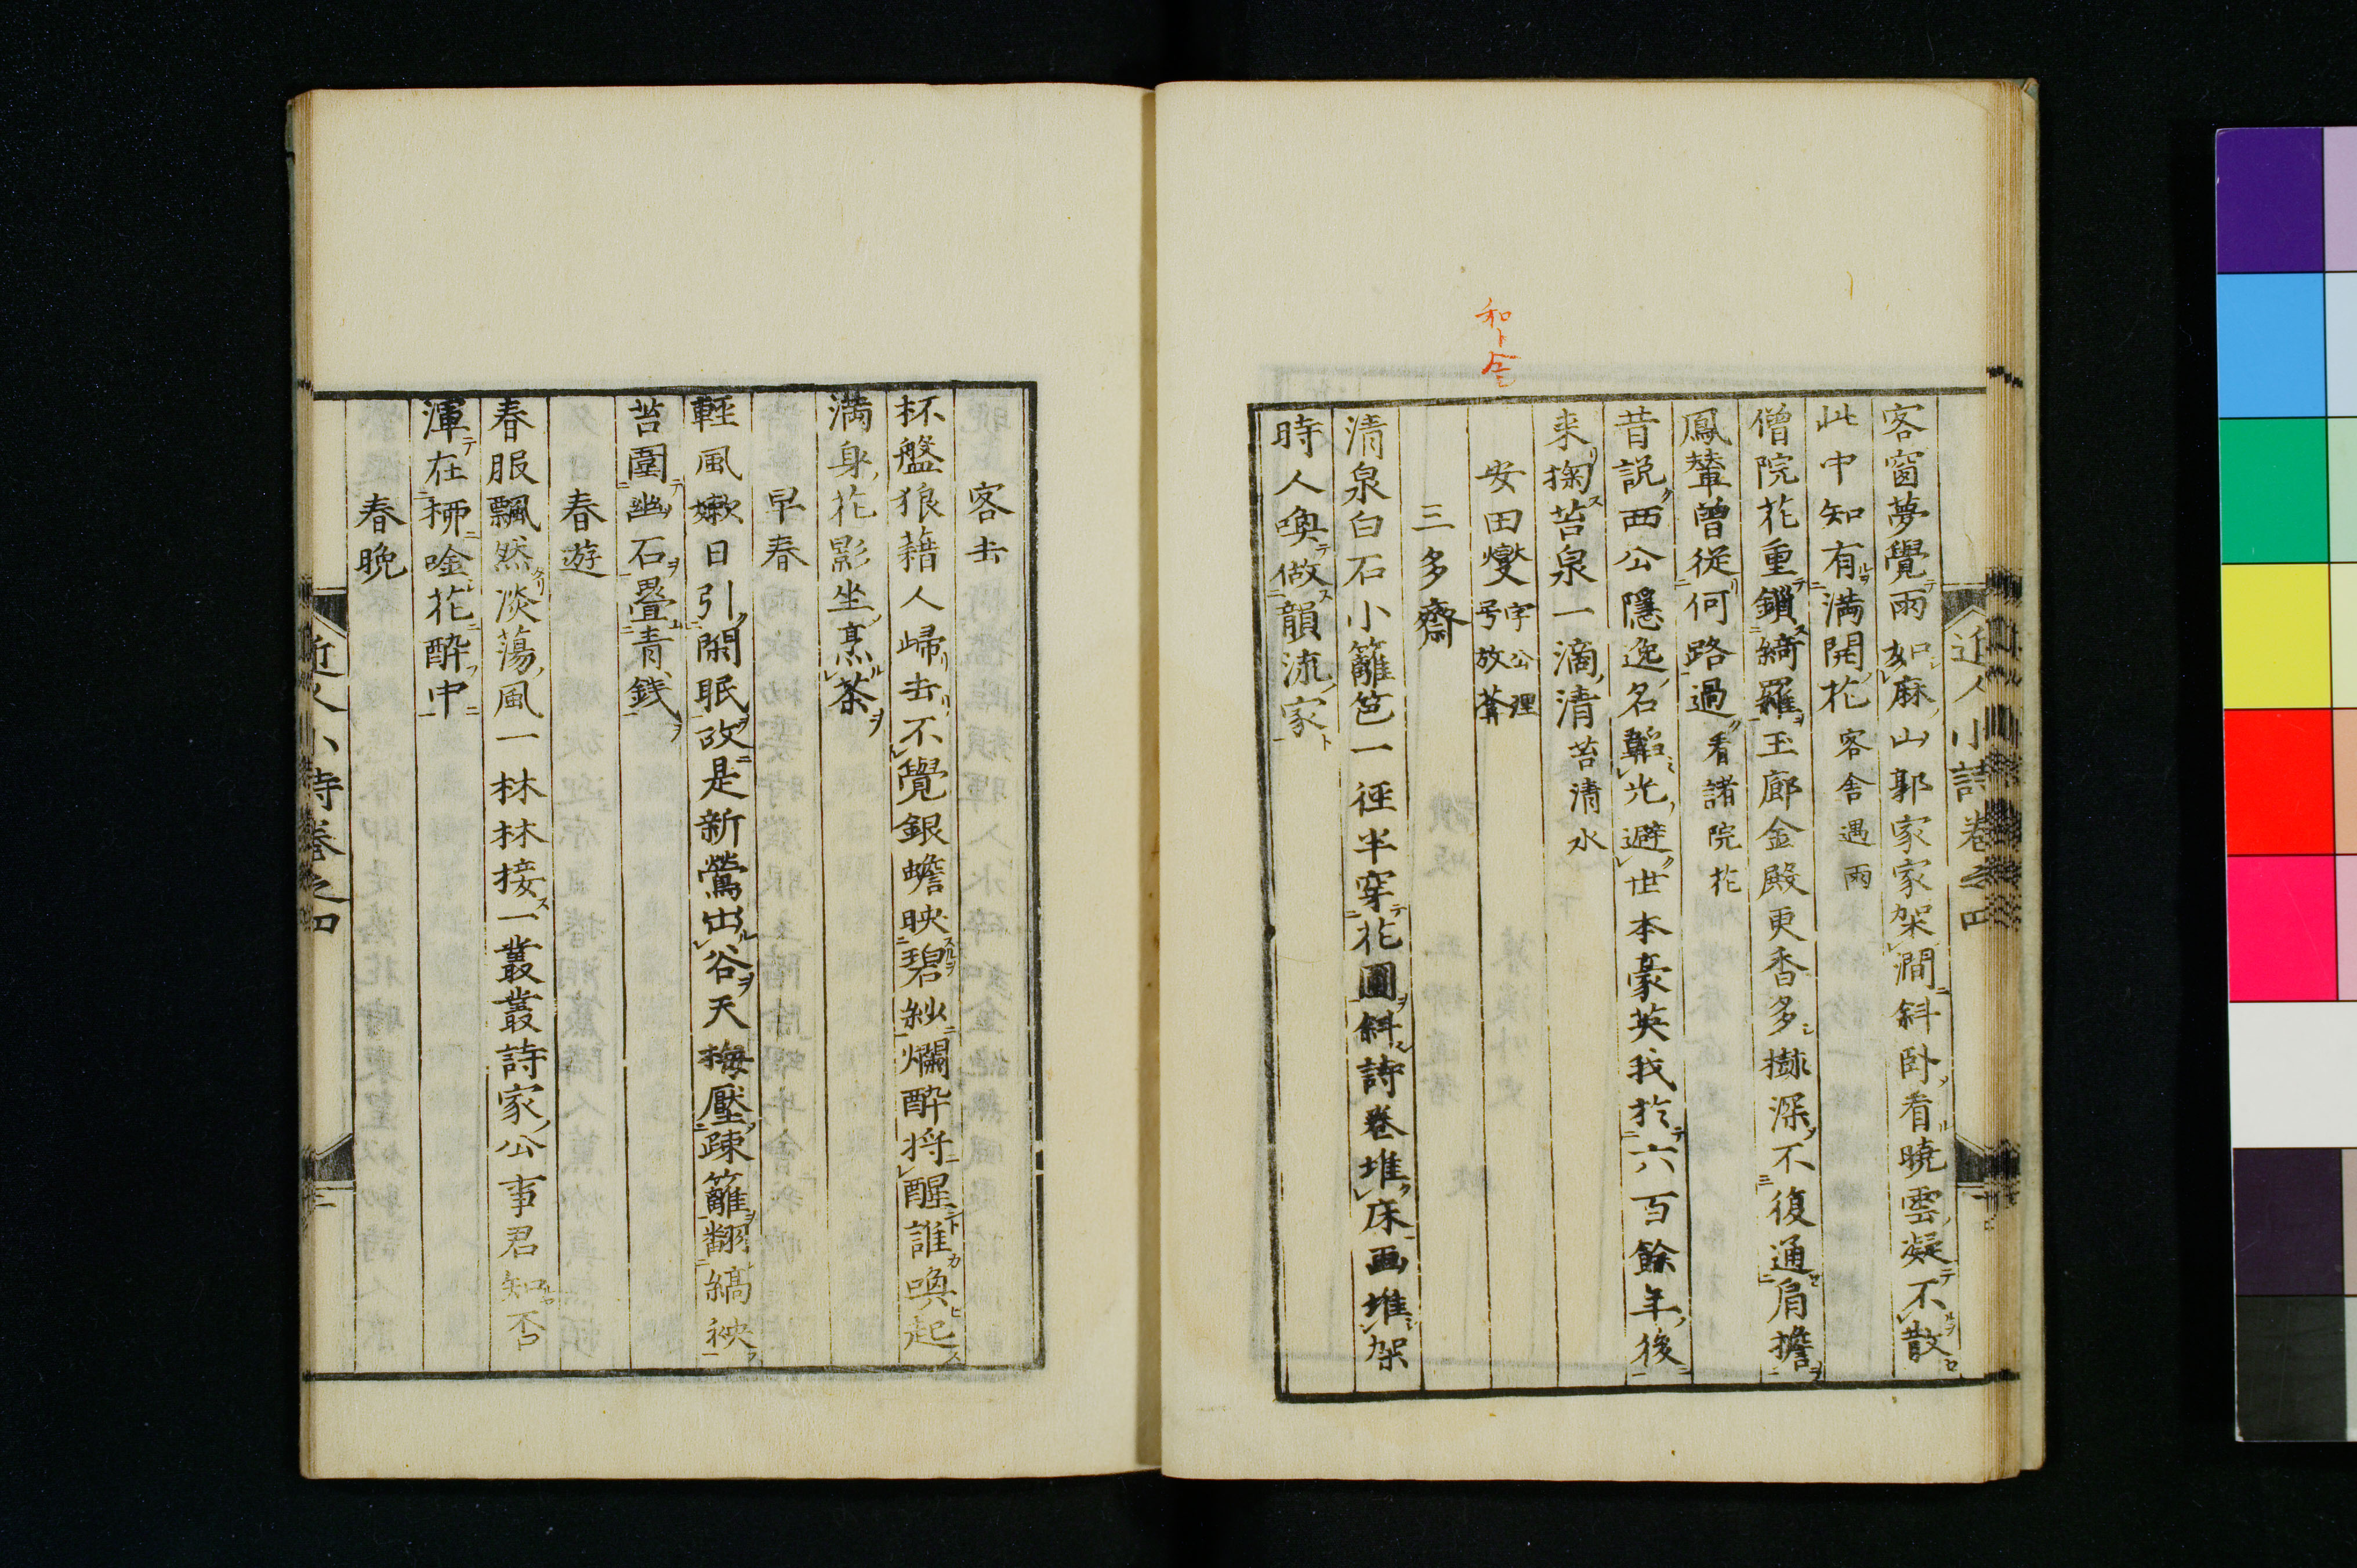 近人小詩巻之四
客窗夢覺雨如麻山郭家家架澗斜卧看曉雲凝不散
此中知有満開花 客舎遇雨
僧院花重鎖綺羅玉廊金殿更香多樾深不復通肩擔
鳳輦曽従何路過 看諸院花
昔説西公隱逸名韜光避世本豪英我於六百餘年後
来掬苔泉一滴清 苔清水
安田燮 字公理
号放葊
三多齋
清泉白石小籬笆一徑半穿花圃斜詩巻堆床画堆架
時人喚做韻流家
客去
杯盤狼藉人歸去不覺銀蟾映碧紗爛酔将醒誰喚起
満身花影坐烹茶
早春
輕風嫩日引閑眠政是新鶯出谷天梅壓疎籬翻縞袂
苔圍幽石畳青銭
春遊
春服飄然淡蕩風一林林接一叢叢詩家公事君知否
渾在栁唫花酔中
春晩
近人小詩巻之四
三